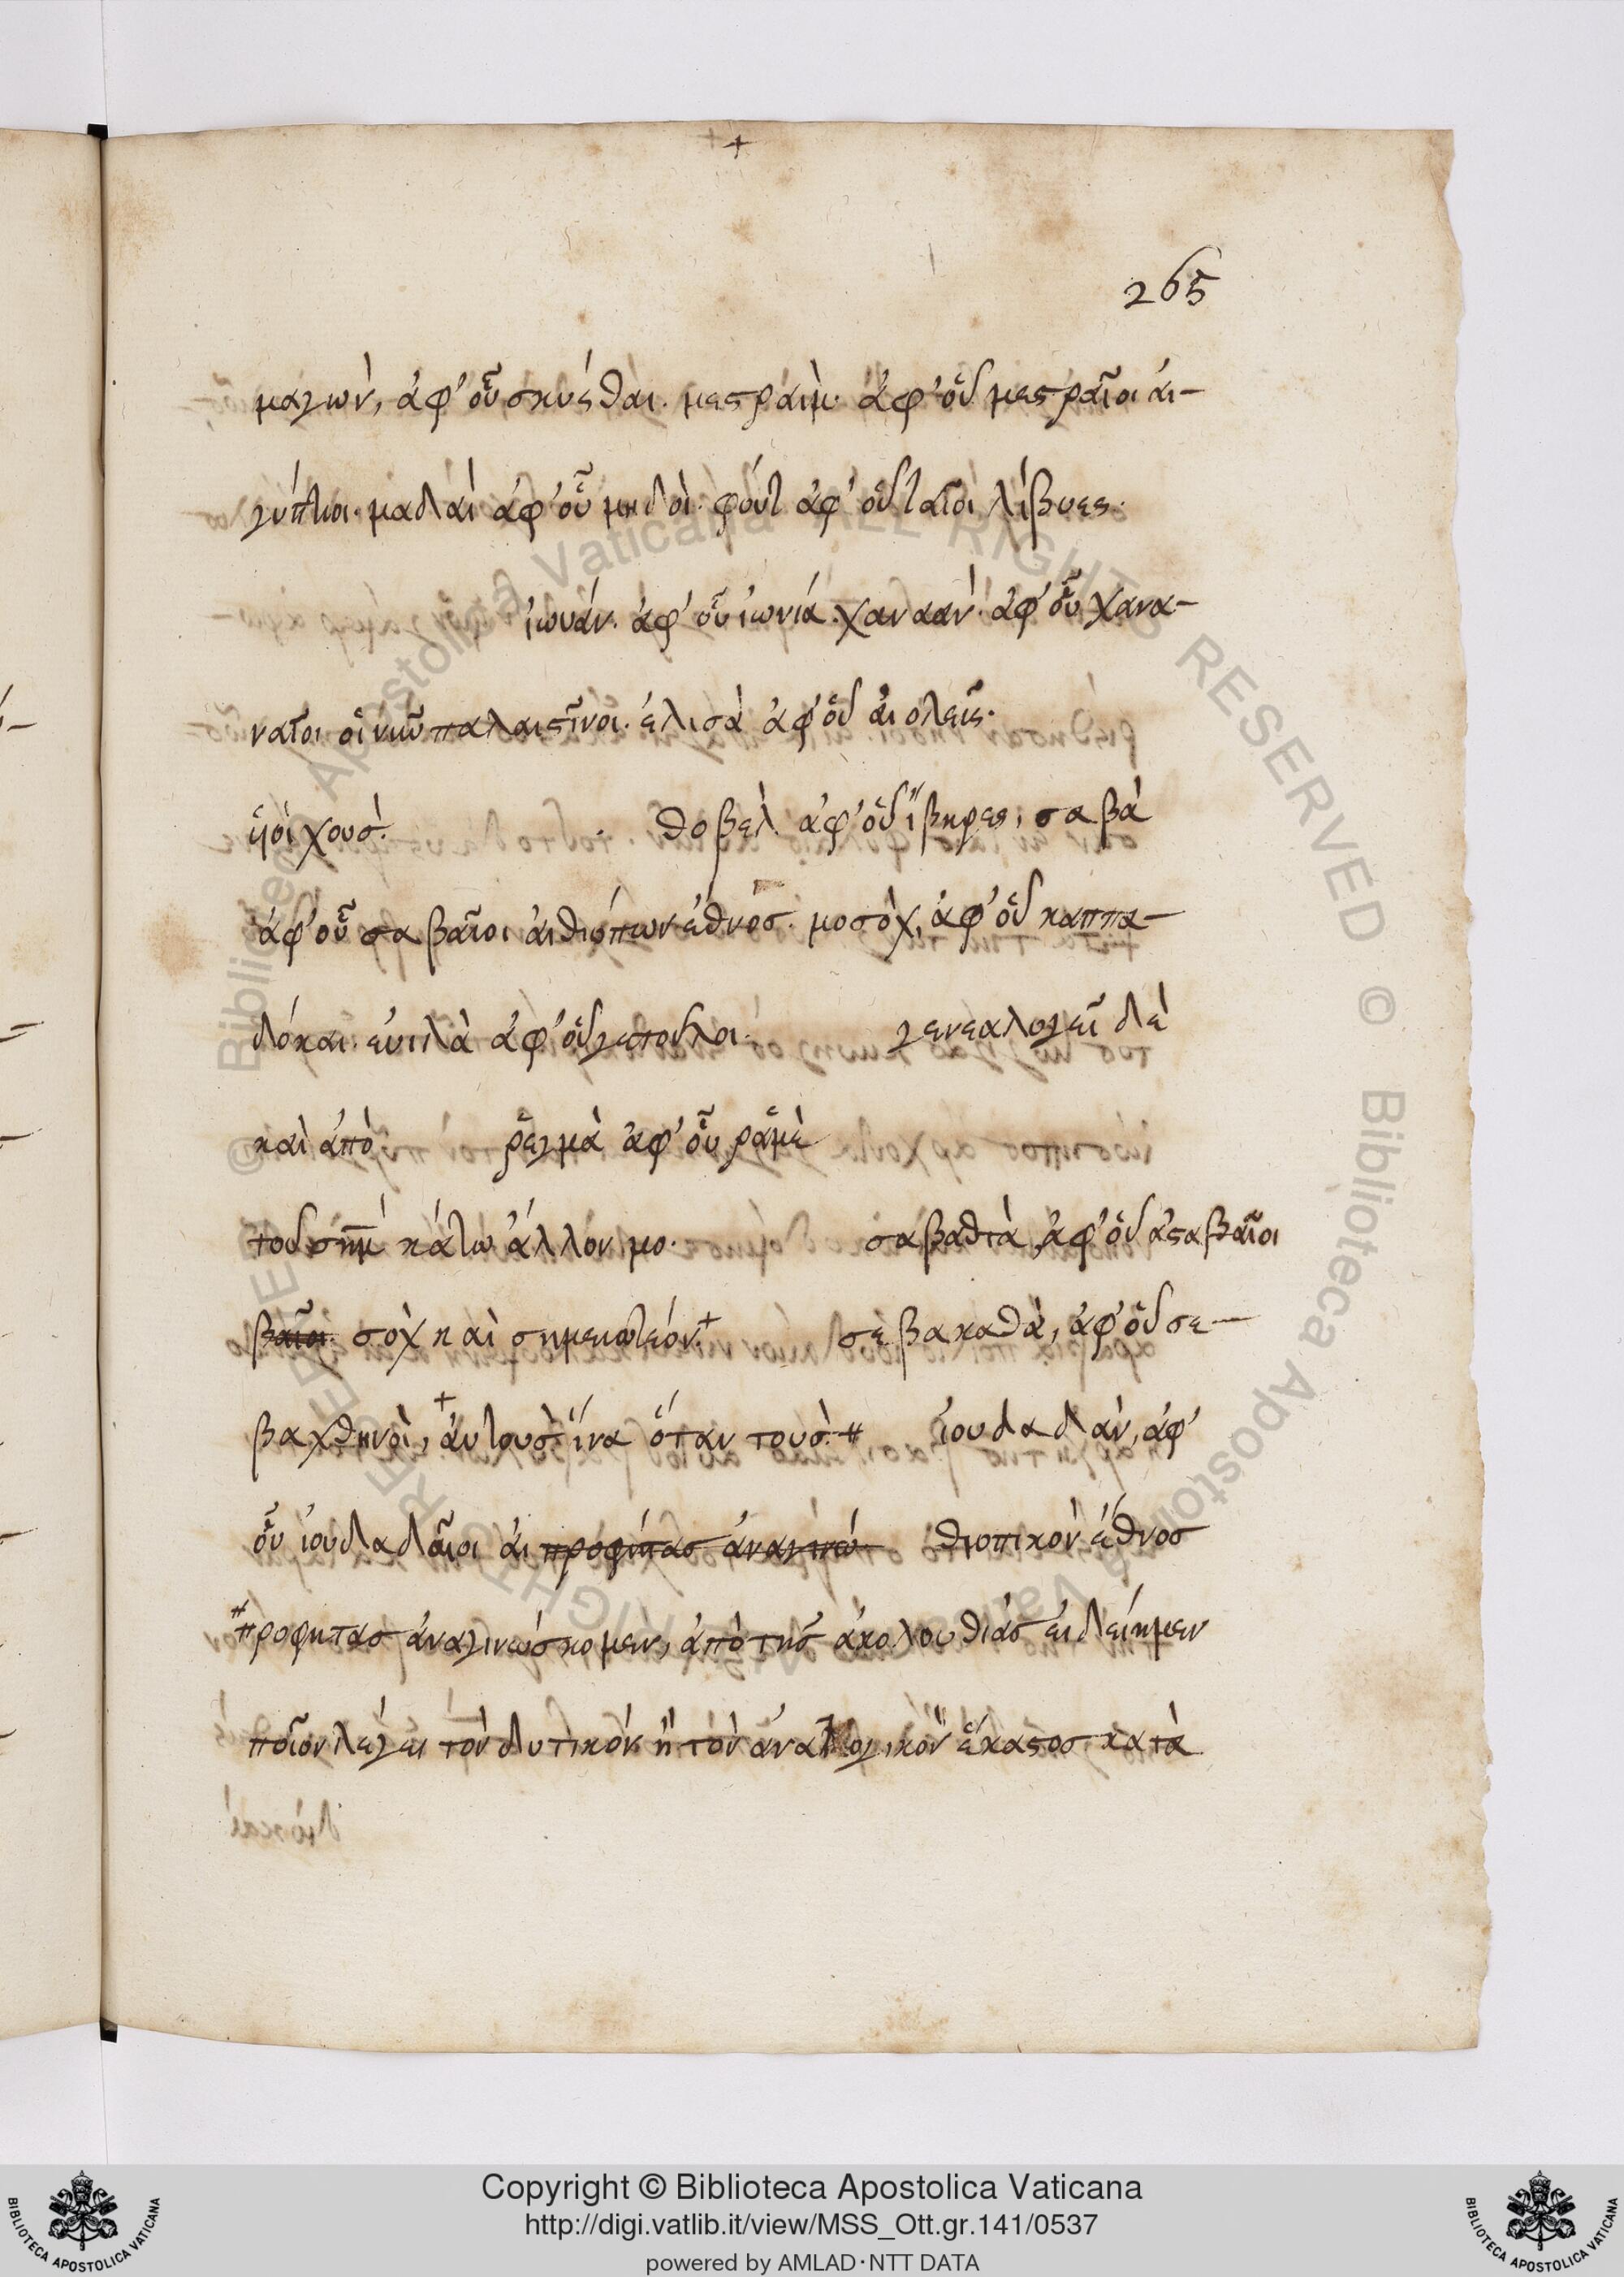 265
μαγὼν, ἀφ' οὗ σκυέθαι. μεσραὶμ. ἀφ' οὗ μεσραῖοι ἀι-
γύπτιοι. μαδαὶ ἀφ' οὗ μηδοὶ. φούτ ἀφ' οὗ ταῖοι λίβυες.
ἰωυάν. ἀφ' οὗ ἰωνία. χαναὰν. ἀφ' οὗ χανα-
ναῖοι οἱ νῦν παλαιστῖνοι. ἐλισὰ ἀφ' οὗ ἀιολεῖς.
χουσ. θοβὲλ ἀφ' οὗ ἴβηρες, σαβὰ
ἀφ' οὗ σαβαῖοι ἀιθιόπων ἔθνος. μοσὸχ, ἀφ' οὗ καππα-
δόκαι. ευιλὰ ἀφ' οὗ γετοῦλοι. γενεαλογεῖ δὲ
καὶ ἀπὸ ῥεγμὰ ἀφ' οὗ ῥαμὲ
τοῦ σὴμ κάτω ἄλλον μο. σαβαθτὰ, ἀφ' οὗ ἀσαβαῖοι
βαῖοι σὸχ καὶ σημειωτέον.+ σεβακαθὰ, ἀφ' οὗ σε-
βαχθηνοὶ, + ἀυτοὺσ ἵνα ὅταν τουσ. # ἰουδαδὰν, ἀφ'
οὗ ἰουδαδαῖοι ἀι προφήτας ἀναγινώ- θιοπικὸν ἔθνος
# προφητας ἀναγινώσκομεν, ἀπὸ τῆς ἀκολουθίας ἐιδείημεν
ποῖον λέγει τὸν δυτικόν ἢ τὸν ἀνατολικὸν ἕκαστος κατὰ
Copyright © Biblioteca Apostolica Vaticana
http://digi.vatlib.it/view/MSS_Ott.gr.141/0537
powered by AMLAD·NTT DATA
BIBLIOTECA APOSTOLICA VATICANA
BIBLIOTECA APOSTOLICA VATICANA